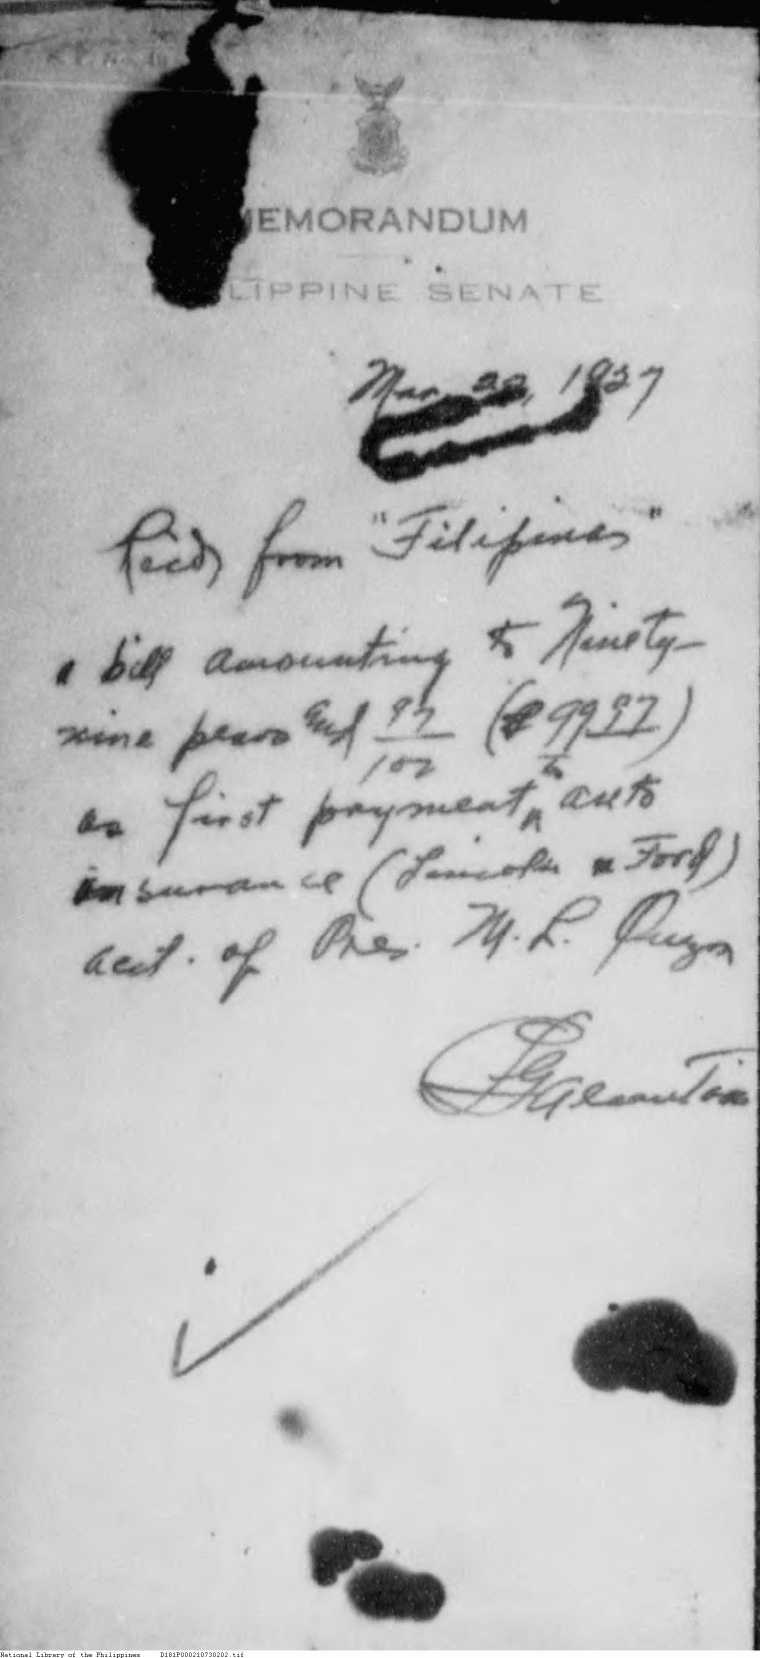 MEMORANDUM
PHILIPPINE SENATE
Mar. 22, 1927
Rec'd from "Filipinas"
a bill amounting to Ninety-
nine pesos and 97/100 (₱ 99 97)
as first payment, auto
insurance (Lincoln Ford)
acct. of Pres. M. L. Quezon
National Library of the Philippines D181P000210730202.tif